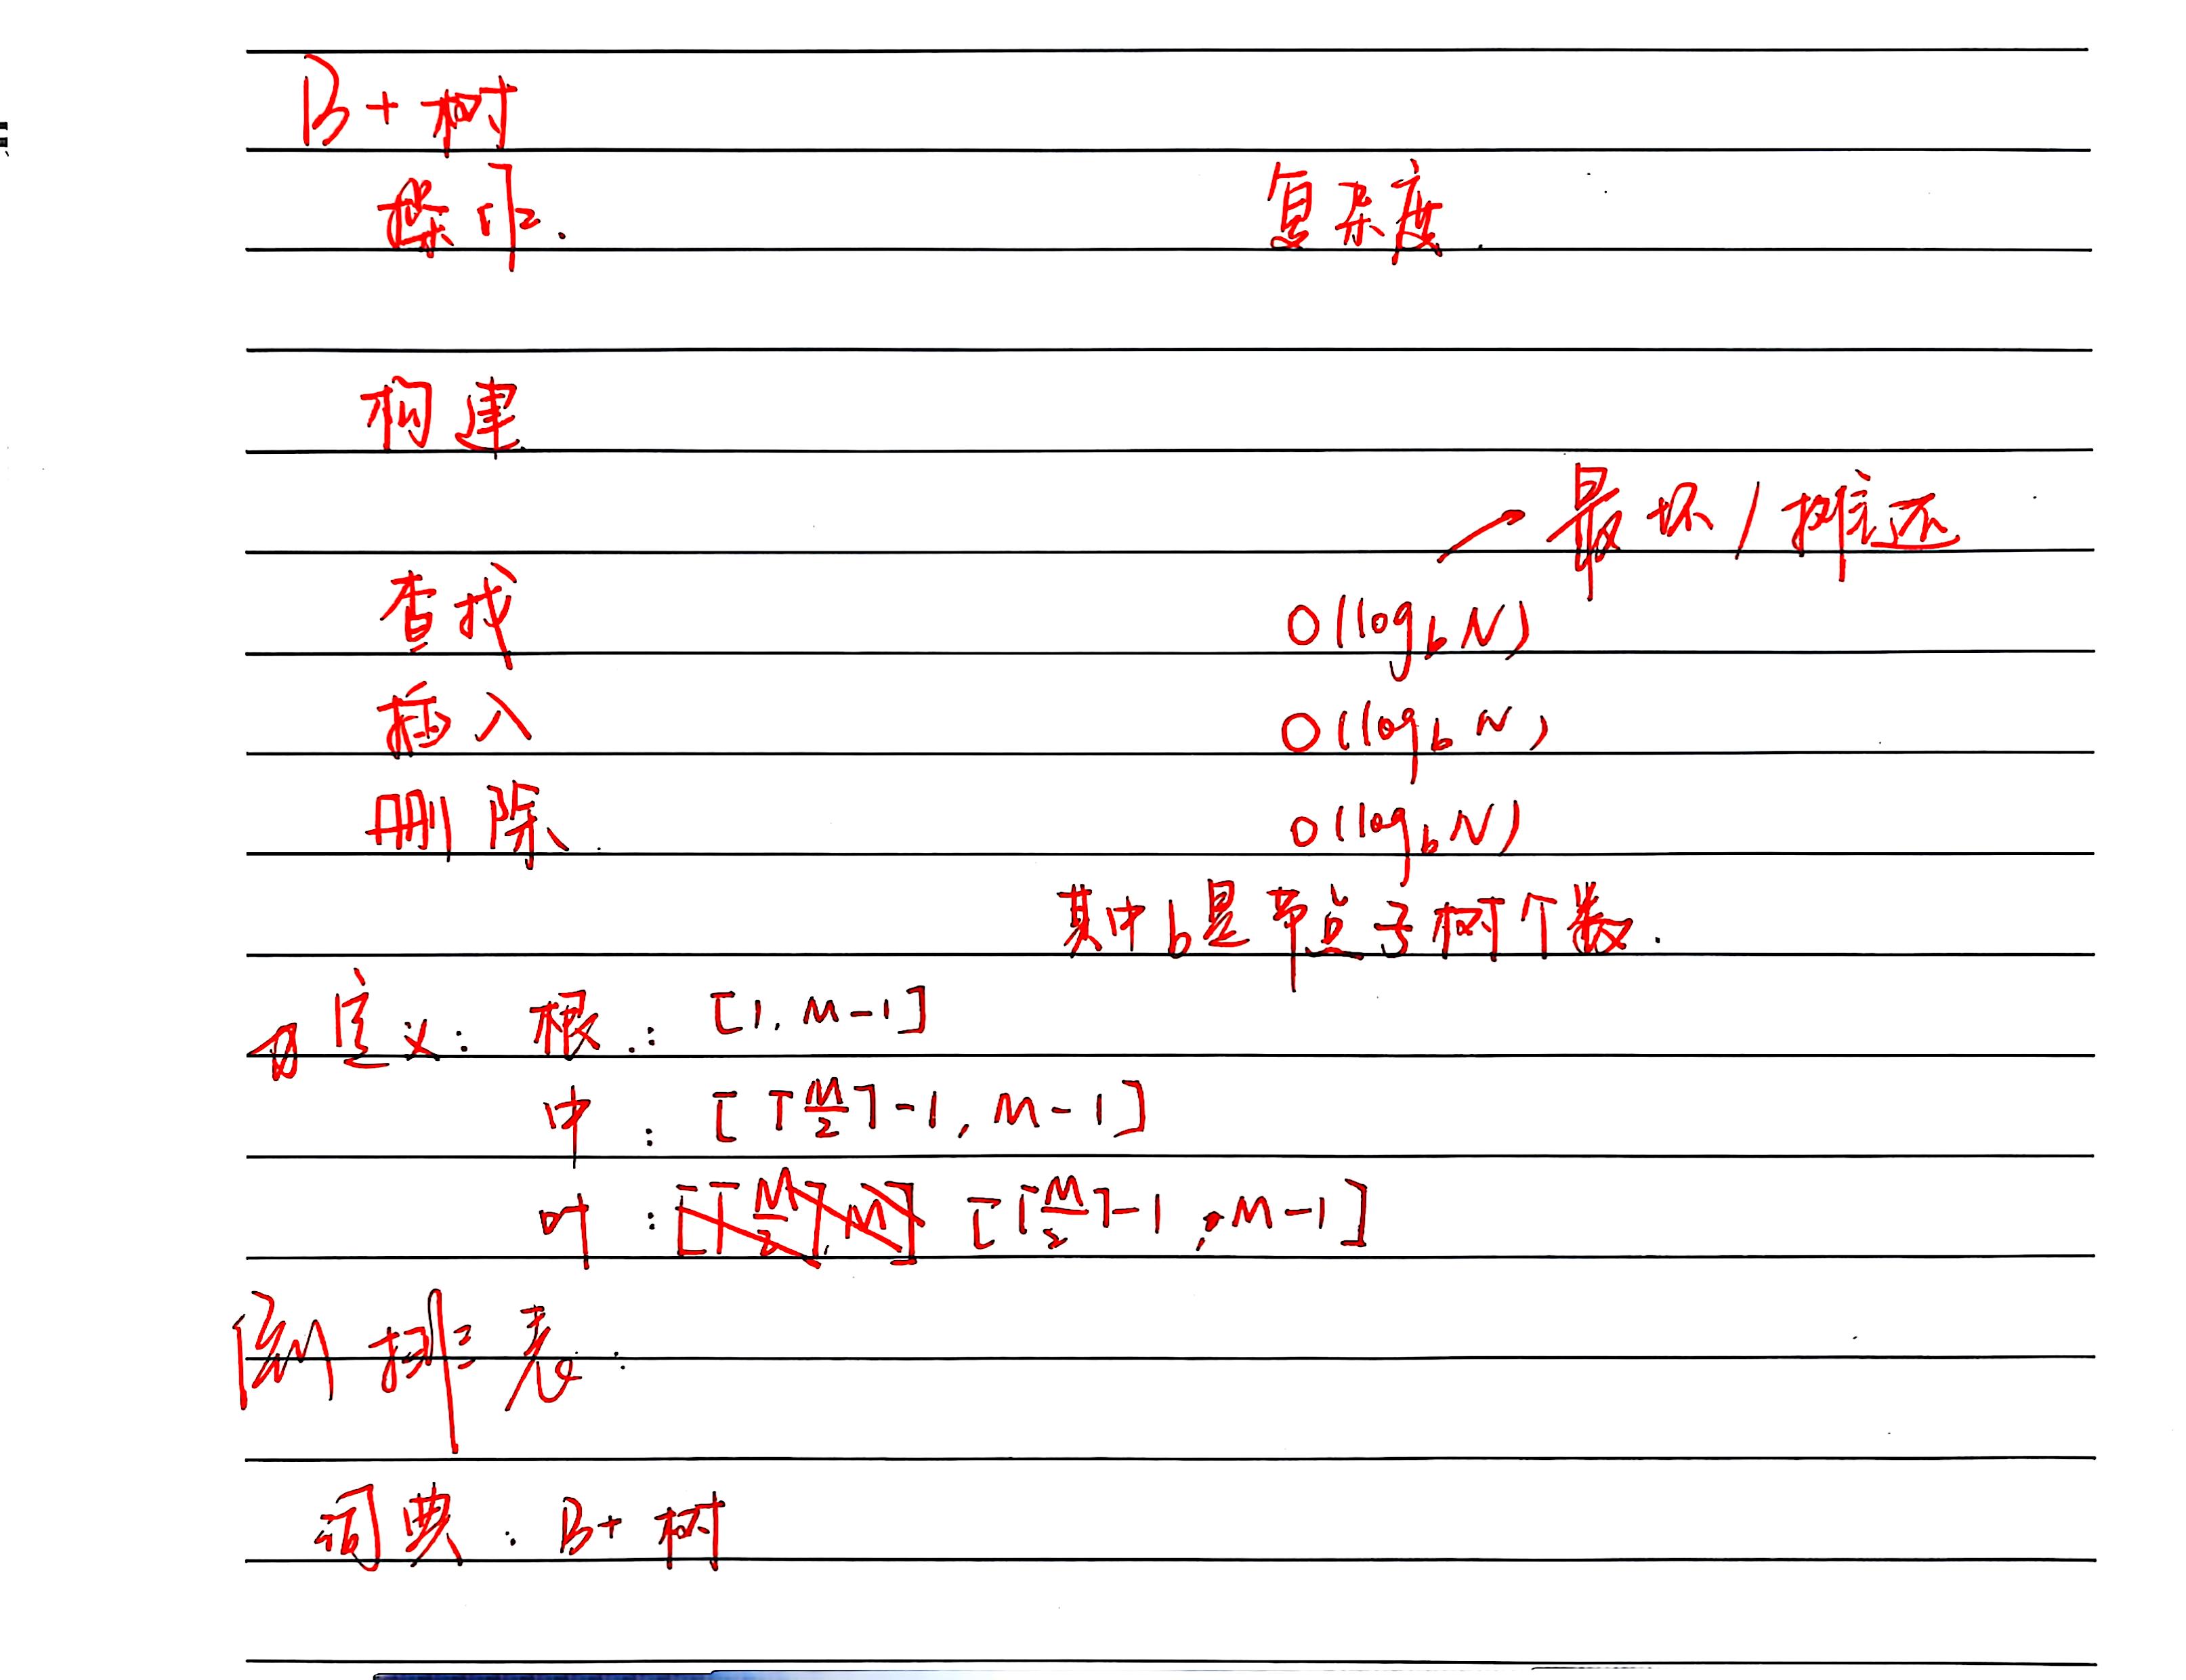 B+树
操作. 复杂度.
构建.
最坏/摊还
查找 O(log_b N)
插入 O(log_b N)
删除. O(log_b N)
其中b是节点子树个数.
定义: 根: [1, M-1]
中: [⌈M/2⌉-1, M-1]
叶: [⌈M/2⌉, M] [⌈M/2⌉-1, M-1]
倒排表:
词典: B+树